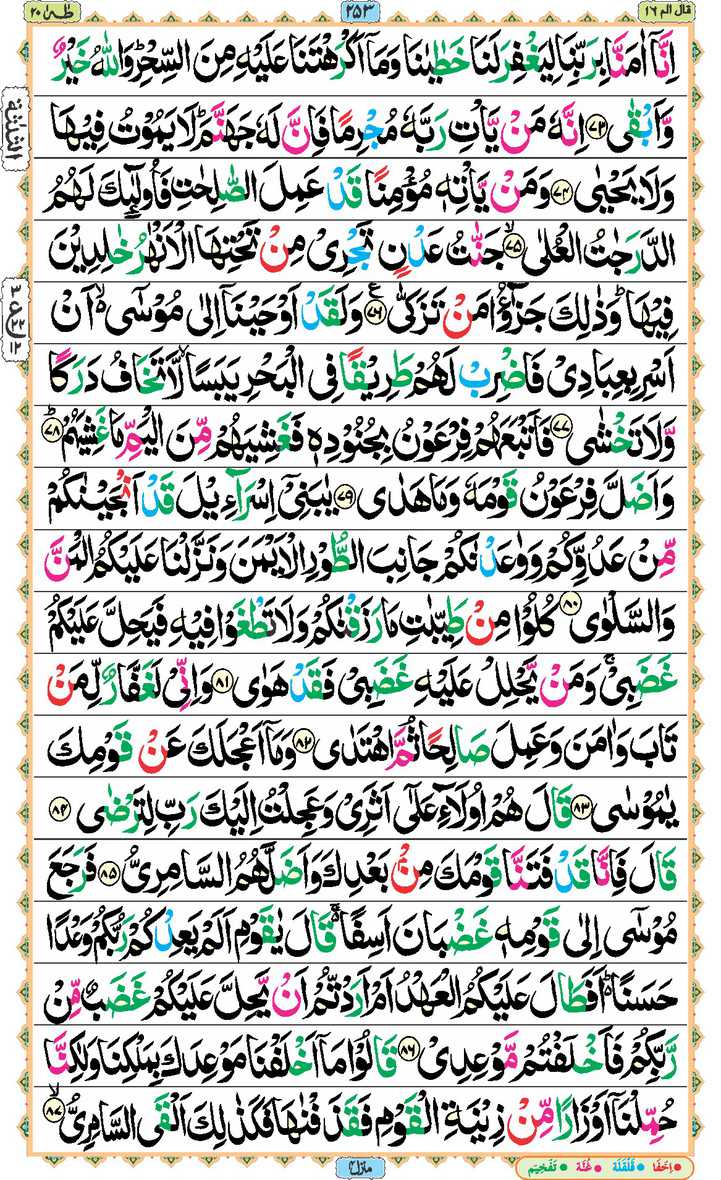 قال الم ١٦
٢٥٣
طٰهٰ ٢٠
اِنَّاۤ اٰمَنَّا بِرَبِّنَا لِيَغْفِرَ لَنَا خَطٰيٰنَا وَمَاۤ اَكْرَهْتَنَا عَلَيْهِ مِنَ السِّحْرِؕ وَاللّٰهُ خَيْرٌ
وَّاَبْقٰى ﴿٧٣﴾ اِنَّهٗ مَنْ يَّاْتِ رَبَّهٗ مُجْرِمًا فَاِنَّ لَهٗ جَهَنَّمَؕ لَا يَمُوْتُ فِيْهَا
وَلَا يَحْيٰى ﴿٧٤﴾ وَمَنْ يَّاْتِهٖ مُؤْمِنًا قَدْ عَمِلَ الصّٰلِحٰتِ فَاُولٰٓئِكَ لَهُمُ
الدَّرَجٰتُ الْعُلٰى ﴿٧٥﴾ۙ جَنّٰتُ عَدْنٍ تَجْرِىْ مِنْ تَحْتِهَا الْاَنْهٰرُ خٰلِدِيْنَ
فِيْهَاؕ وَذٰلِكَ جَزٰٓؤُا مَنْ تَزَكّٰى ﴿٧٦﴾ع وَلَقَدْ اَوْحَيْنَاۤ اِلٰى مُوْسٰٓى ۙ اَنْ
اَسْرِ بِعِبَادِىْ فَاضْرِبْ لَهُمْ طَرِيْقًا فِى الْبَحْرِ يَبَسًا ۙ لَّا تَخٰفُ دَرَكًا
وَّلَا تَخْشٰى ﴿٧٧﴾ فَاَتْبَعَهُمْ فِرْعَوْنُ بِجُنُوْدِهٖ فَغَشِيَهُمْ مِّنَ الْيَمِّ مَا غَشِيَهُمْ ﴿٧٨﴾ؕ
وَاَضَلَّ فِرْعَوْنُ قَوْمَهٗ وَمَا هَدٰى ﴿٧٩﴾ يٰبَنِىْۤ اِسْرَآءِيْلَ قَدْ اَنْجَيْنٰكُمْ
مِّنْ عَدُوِّكُمْ وَوٰعَدْنٰكُمْ جَانِبَ الطُّوْرِ الْاَيْمَنَ وَنَزَّلْنَا عَلَيْكُمُ الْمَنَّ
وَالسَّلْوٰى ﴿٨٠﴾ كُلُوْا مِنْ طَيِّبٰتِ مَا رَزَقْنٰكُمْ وَلَا تَطْغَوْا فِيْهِ فَيَحِلَّ عَلَيْكُمْ
غَضَبِىْۚ وَمَنْ يَّحْلِلْ عَلَيْهِ غَضَبِىْ فَقَدْ هَوٰى ﴿٨١﴾ وَاِنِّىْ لَغَفَّارٌ لِّمَنْ
تَابَ وَاٰمَنَ وَعَمِلَ صَالِحًا ثُمَّ اهْتَدٰى ﴿٨٢﴾ وَمَاۤ اَعْجَلَكَ عَنْ قَوْمِكَ
يٰمُوْسٰى ﴿٨٣﴾ قَالَ هُمْ اُولَآءِ عَلٰٓى اَثَرِىْ وَعَجِلْتُ اِلَيْكَ رَبِّ لِتَرْضٰى ﴿٨٤﴾
قَالَ فَاِنَّا قَدْ فَتَنَّا قَوْمَكَ مِنْۢ بَعْدِكَ وَاَضَلَّهُمُ السَّامِرِىُّ ﴿٨٥﴾ فَرَجَعَ
مُوْسٰٓى اِلٰى قَوْمِهٖ غَضْبَانَ اَسِفًا ۬ۚ قَالَ يٰقَوْمِ اَلَمْ يَعِدْكُمْ رَبُّكُمْ وَعْدًا
حَسَنًا ؕ۬ اَفَطَالَ عَلَيْكُمُ الْعَهْدُ اَمْ اَرَدْتُّمْ اَنْ يَّحِلَّ عَلَيْكُمْ غَضَبٌ مِّنْ
رَّبِّكُمْ فَاَخْلَفْتُمْ مَّوْعِدِىْ ﴿٨٦﴾ قَالُوْا مَاۤ اَخْلَفْنَا مَوْعِدَكَ بِمَلْكِنَا وَلٰكِنَّا
حُمِّلْنَاۤ اَوْزَارًا مِّنْ زِيْنَةِ الْقَوْمِ فَقَذَفْنٰهَا فَكَذٰلِكَ اَلْقَى السَّامِرِىُّ ﴿٨٧﴾ۙ
الثلثة
٣
ع
١٢
منزل ٤
اِخْفَا
قَلْقَلَة
غُنَّه
تَفْخِيْم